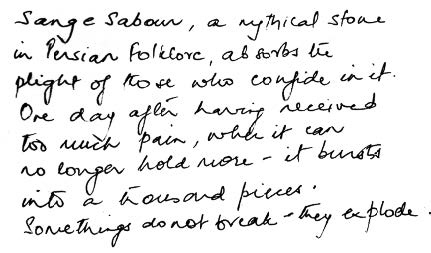 Sange Sabour, a mythical stone
in Persian Folklore, absorbs the
plight of those who confide in it.
One day after having received
too much pain, when it can
no longer hold more - it bursts
into a thousand pieces.
Some things do not break - they explode.